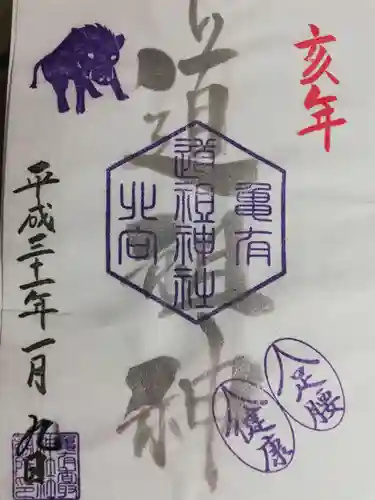 亥年
道祖神
亀有
道祖神社
北向
平成三十一年一月九日
足腰
健康